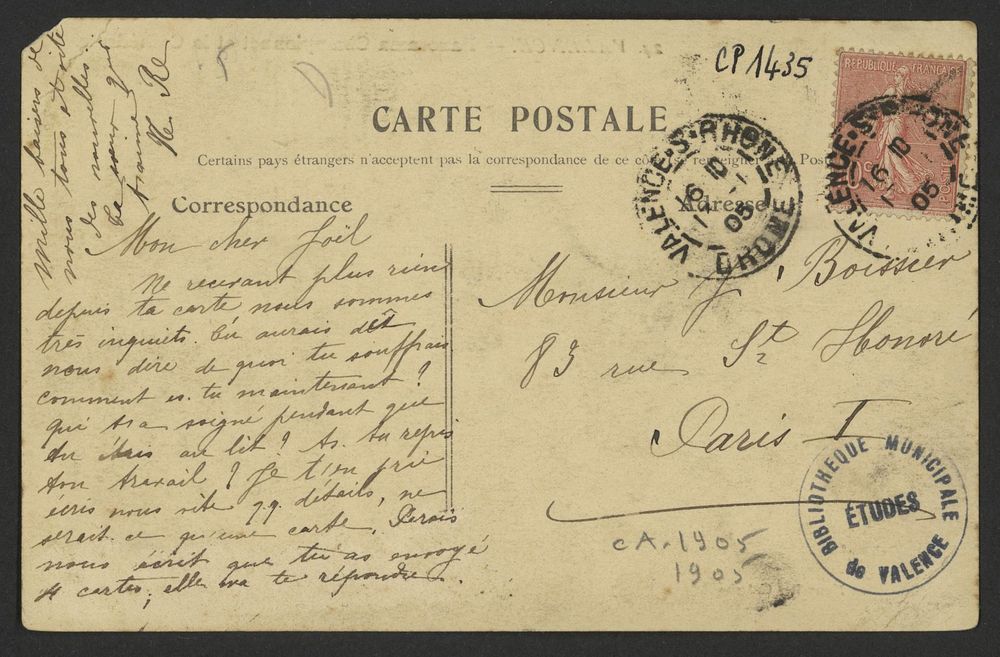 CP 1435
CARTE POSTALE
Certains pays étrangers n'acceptent pas la correspondance de ce côté, renseigner Poste
Correspondance
Adresse
REPUBLIQUE FRANÇAISE
VALENCE-S-RHONE
DROME
16
05
VALENCE-S-RHONE
16
05
Mon cher Joël
Ne recevant plus rien
depuis ta carte nous sommes
très inquiets. Tu aurais dût
nous dire de quoi tu souffrais
comment es-tu maintenant ?
qui t'a soigné pendant que
tu étais au lit ? As-tu repris
ton travail ? Je t'en prie
écris nous vite qq. détails, ne
serait-ce qu'une carte.
nous écrit que tu as envoyé
4 cartes, elle va te répondre.
Mille baisers de
nous tous et vite
des nouvelles.
Ta sœur qui
t'aime
Monsieur J. Boissier
83 rue St Honoré
Paris I
BIBLIOTHEQUE MUNICIPALE
ÉTUDES
de VALENCE
CA. 1905
1905